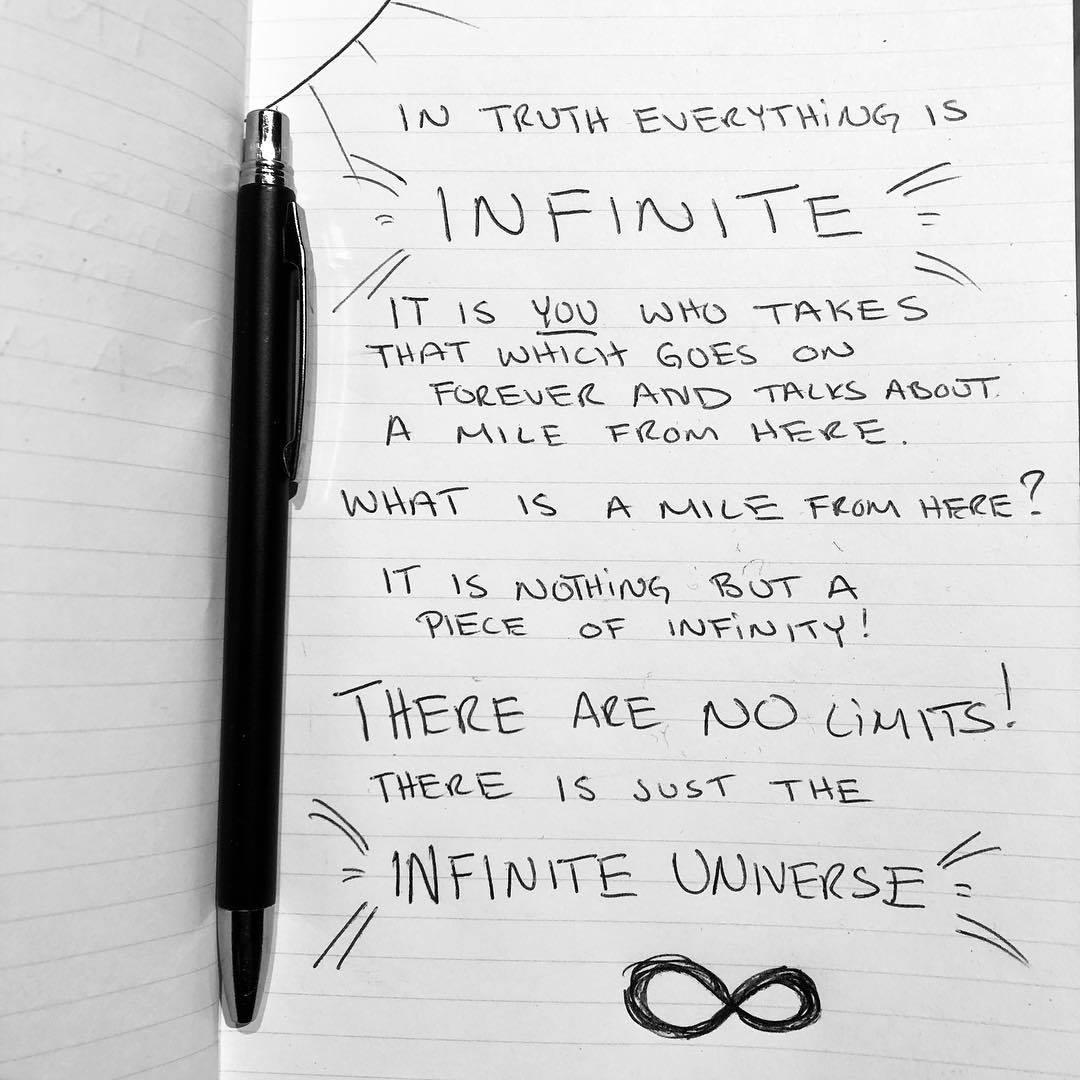 IN TRUTH EVERYTHiNG IS
INFINITE
IT IS YOU WHO TAKES
THAT WHICH GOES ON
FOREVER AND TALKS ABOUT
A MILE FROM HERE.
WHAT IS A MILE FROM HERE?
IT IS NOTHiNG BUT A
PIECE OF INFiNITY!
THERE ARE NO LiMITS!
THERE IS JUST THE
INFINITE UNIVERSE
∞